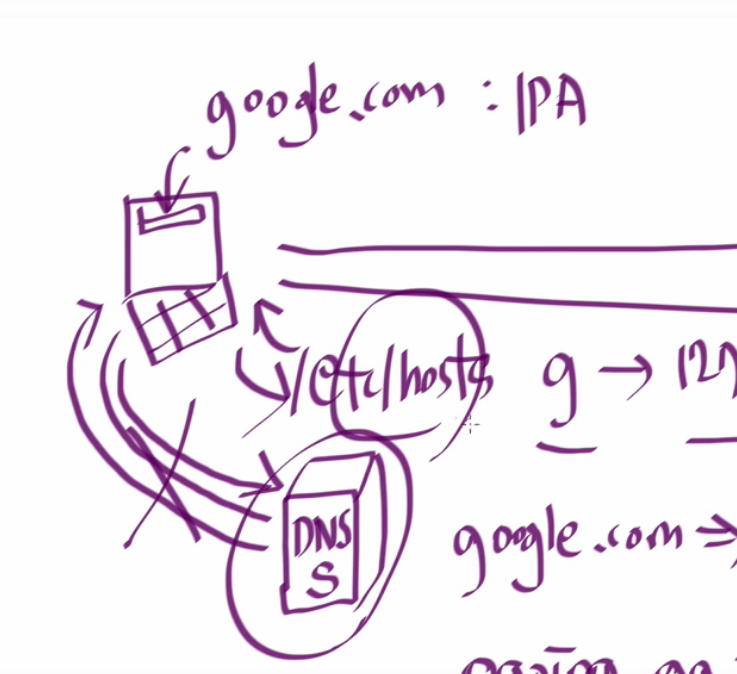 google.com : IPA
/etc/hosts g → 127
DNS
S
google.com →